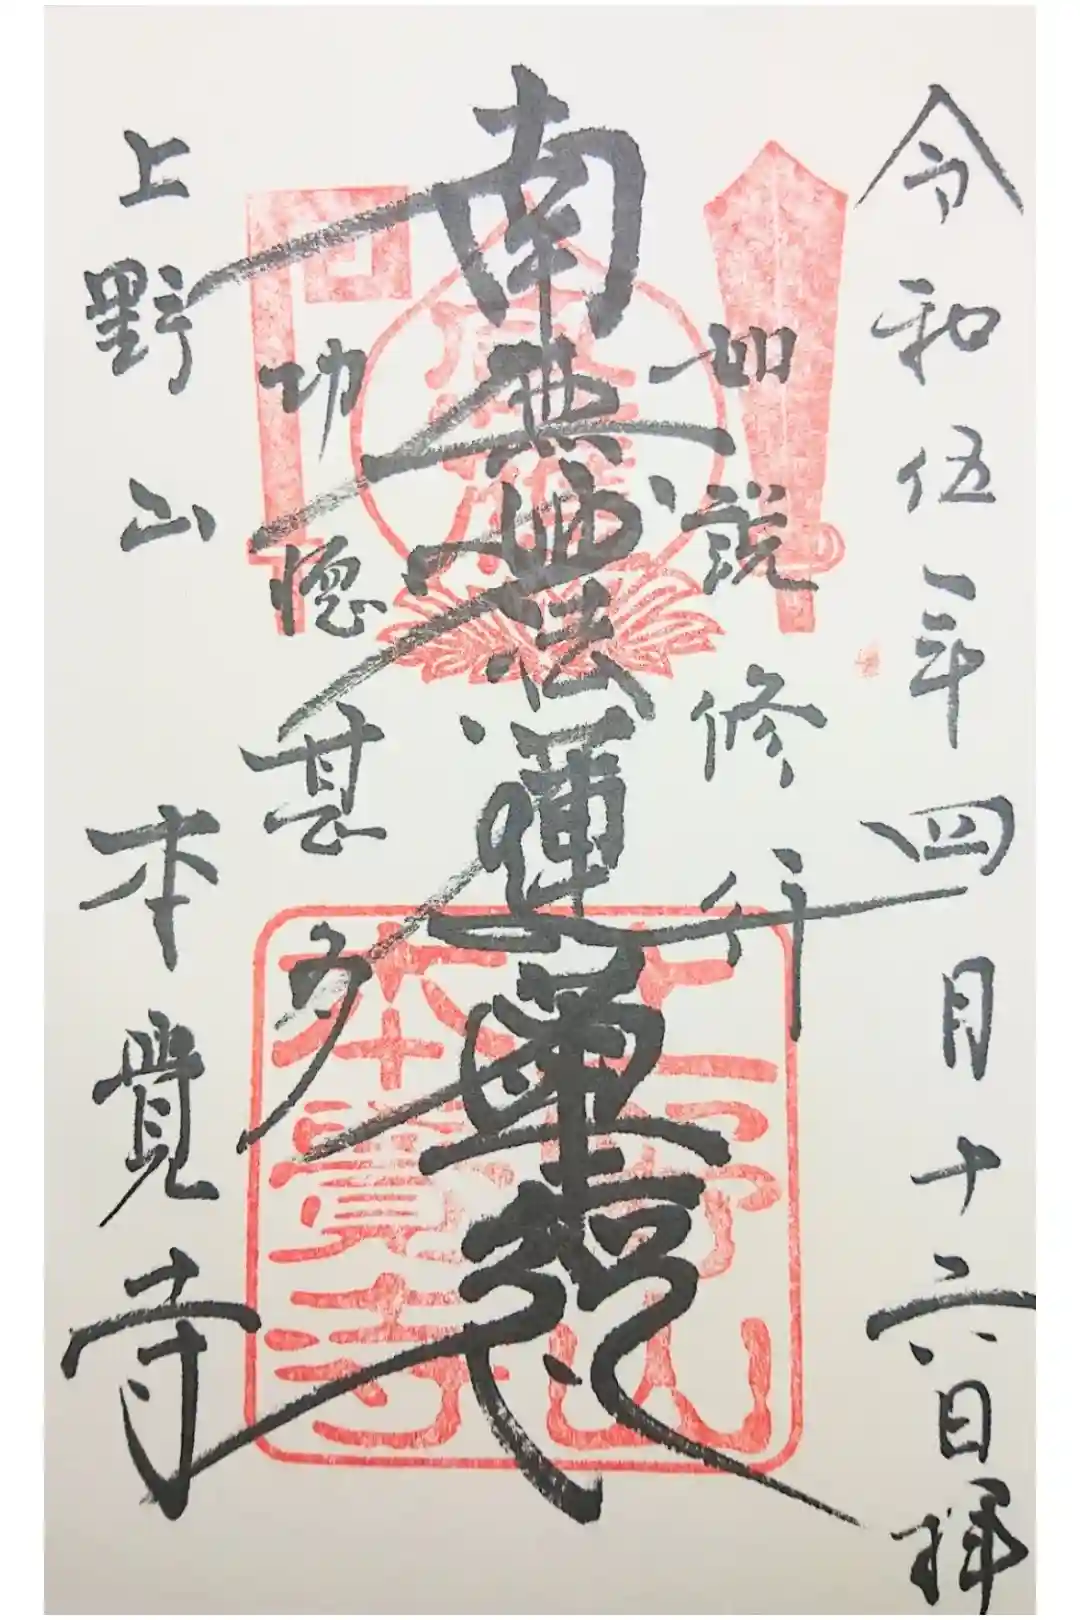 令和伍年四月十六日拝
如説修行
南無妙法蓮華経
功徳甚多
上野山 本覺寺
上野山
本覺寺